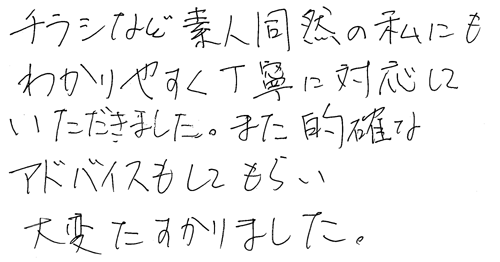 チラシなど素人同然の私にも
わかりやすく丁寧に対応して
いただきました。また的確な
アドバイスもしてもらい
大変たすかりました。